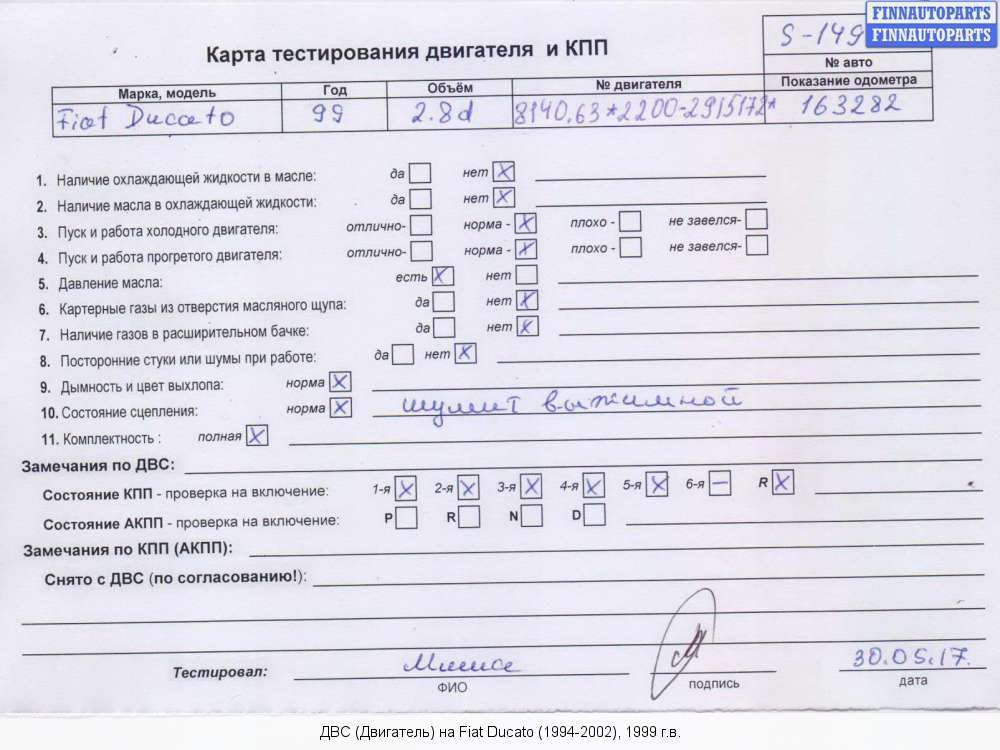 FINNAUTOPARTS
FINNAUTOPARTS
S-149
№ авто
Карта тестирования двигателя и КПП
Марка, модель Год Объём № двигателя Показание одометра
Fiat Ducato 99 2.8d 8140.63*2200-2915172* 163282
1. Наличие охлаждающей жидкости в масле: да нет X
2. Наличие масла в охлаждающей жидкости: да нет X
3. Пуск и работа холодного двигателя: отлично- норма - X плохо - не завелся-
4. Пуск и работа прогретого двигателя: отлично- норма - X плохо - не завелся-
5. Давление масла: есть X нет
6. Картерные газы из отверстия масляного щупа: да нет X
7. Наличие газов в расширительном бачке: да нет X
8. Посторонние стуки или шумы при работе: да нет X
9. Дымность и цвет выхлопа: норма X
10. Состояние сцепления: норма X шумит выжимной
11. Комплектность : полная X
Замечания по ДВС:
Состояние КПП - проверка на включение: 1-я X 2-я X 3-я X 4-я X 5-я X 6-я — R X
Состояние АКПП - проверка на включение: P R N D
Замечания по КПП (АКПП):
Снято с ДВС (по согласованию!):
Тестировал: 30.05.17.
ФИО подпись дата
ДВС (Двигатель) на Fiat Ducato (1994-2002), 1999 г.в.